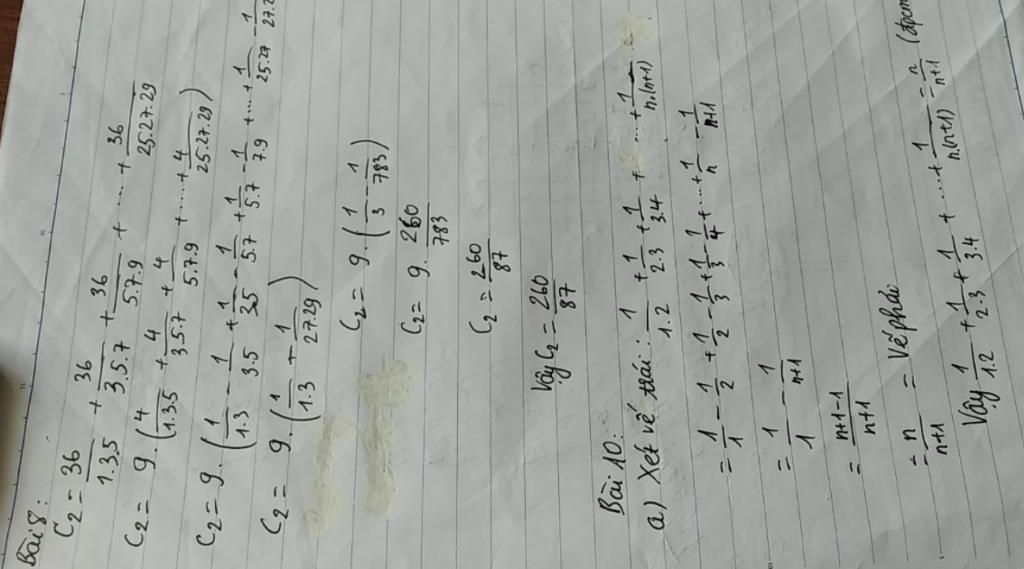 Bài 8:
C₂ = 36/1.3.5 + 36/3.5.7 + 36/5.7.9 + ..... + 36/25.27.29
C₂ = 9.(4/1.3.5 + 4/3.5.7 + 4/5.7.9 + ..... + 4/25.27.29)
C₂ = 9.(1/1.3 - 1/3.5 + 1/3.5 - 1/5.7 + 1/5.7 - 1/7.9 + ... + 1/25.27 - 1/27.2
C₂ = 9.(1/1.3 - 1/27.29)
C₂ = 9.(1/3 - 1/783)
C₂ = 9. 260/783
C₂ = 260/87
Vậy C₂ = 260/87
Bài 10:
a) Xét vế trái: 1/1.2 + 1/2.3 + 1/3.4 + ... + 1/n.(n+1)
= 1/1 - 1/2 + 1/2 - 1/3 + 1/3 - 1/4 + ... + 1/n - 1/n+1
= 1/1 - 1/n+1
= n+1-1/n+1
= n/n+1 = Vế phải
Vậy 1/1.2 + 1/2.3 + 1/3.4 + ..... + 1/n.(n+1) = n/n+1 (đpcm